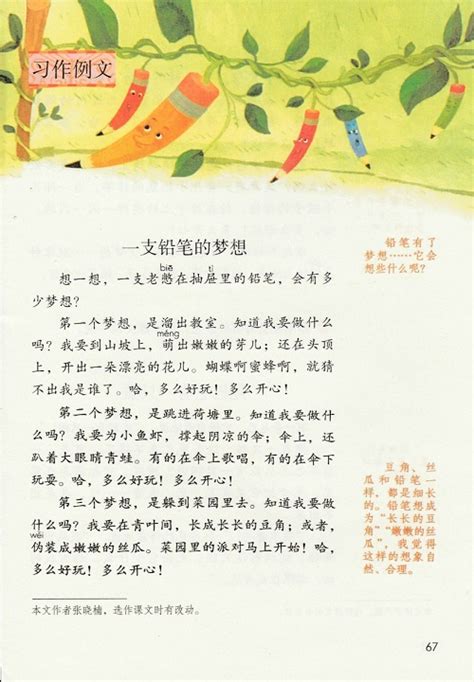 习作例文
一支铅笔的梦想
biē tì
想一想，一支老憋在抽屉里的铅笔，会有多
少梦想？
第一个梦想，是溜出教室。知道我要做什么
méng
吗？我要到山坡上，萌出嫩嫩的芽儿；还在头顶
上，开出一朵漂亮的花儿。蝴蝶啊蜜蜂啊，就猜
不出我是谁了。哈，多么好玩！多么开心！
第二个梦想，是跳进荷塘里。知道我要做什
么吗？我要为小鱼虾，撑起阴凉的伞；伞上，还
趴着大眼睛青蛙。有的在伞上歌唱，有的在伞下
玩耍。哈，多么好玩！多么开心！
第三个梦想，是躲到菜园里去。知道我要做
什么吗？我要在青叶间，长成长长的豆角；或者，
wěi
伪装成嫩嫩的丝瓜。菜园里的派对马上开始！哈，
多么好玩！多么开心！
铅笔有了
梦想……它会
想些什么呢？
豆角、丝
瓜和铅笔一
样，都是细长
的。铅笔想成
为“长长的豆
角”“嫩嫩的丝
瓜”，我觉得
这样的想象自
然、合理。
本文作者张晓楠，选作课文时有改动。
67